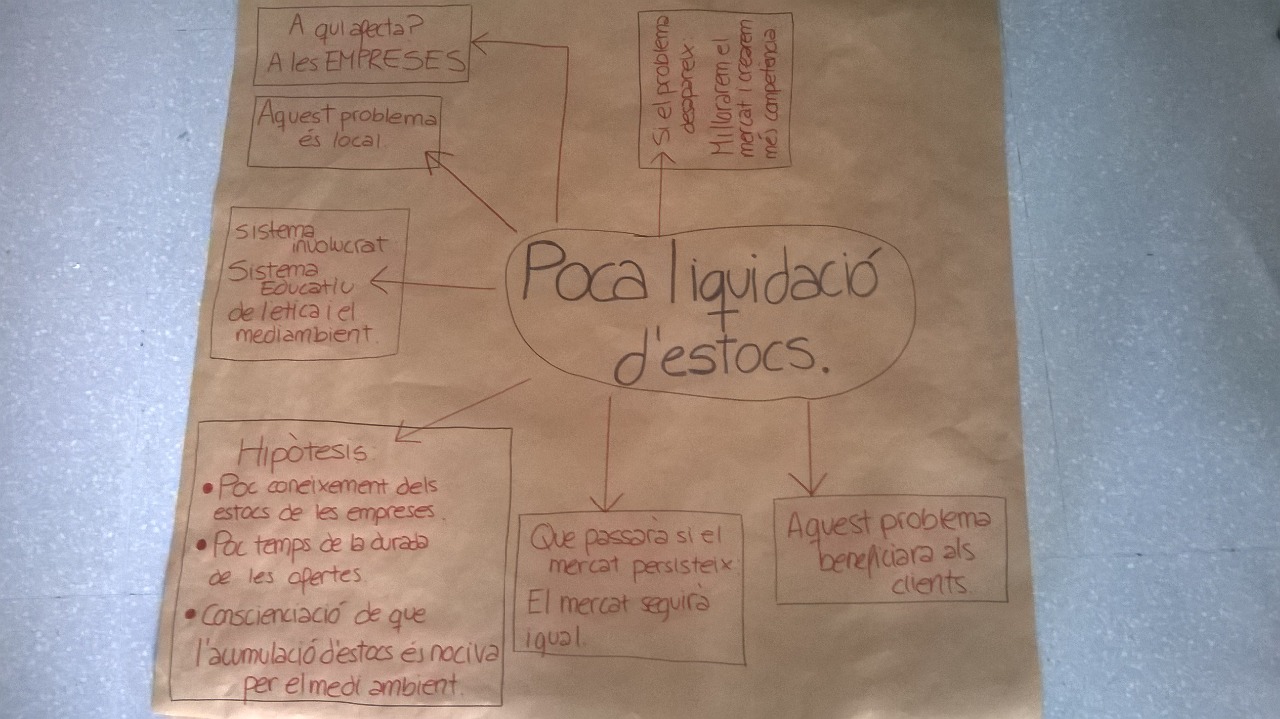 A qui afecta?
A les EMPRESES
Aquest problema
és local.
Si el problema
desapareix:
Millorarem el
mercat i crearem
més competència.
sistema
involucrat
Sistema
Educatiu
de letica i el
mediambient.
Poca liquidació
d'estocs.
Hipòtesis:
• Poc coneixement dels
estocs de les empreses.
• Poc temps de la durada
de les ofertes.
• Conscienciació de que
l'acumulació d'estocs és nociva
per el medi ambient.
Que passarà si el
mercat persisteix
El mercat seguirà
igual.
Aquest problema
beneficiara als
clients.